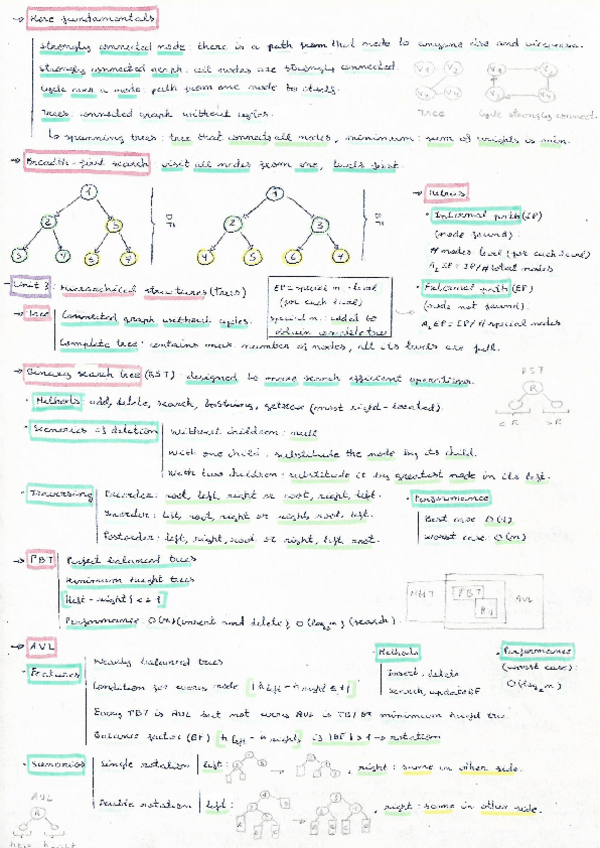 → More fundamentals
strongly connected node: there is a path from that node to anyone else and viceversa.
strongly connected graph: all nodes are strongly connected
Cycle over a node: path from one node to itself.
Trees: connected graph without cycles.
↳ spanning trees: tree that connects all nodes, minimum: sum of weights is min.
V1 V2
V4
Tree
Cycle strongly connect.
→ Breadth-first search visit all nodes from one, levels first.
1
2 3
1
2 3
4 5 6 7
→ Metrics
· Internal path (IP)
(node found):
# nodes · level (for each level)
A, IP = IP/# total nodes
· External path (EP)
(node not found):
A, EP = EP/# special nodes
EP = special n · level
(for each level)
special n: added to
obtain complete tree
- Unit 3: Hierarchical structures (Trees)
→ Tree
Connected graph without cycles.
Complete tree: contains max. number of nodes, all its levels are full.
→ Binary search tree (BST): designed to make search efficient operations.
· Methods: add, delete, search, toString, getMax (most right-located)
BST
R
< R > R
· Scenarios of deletion
Without children: null
With one child: substitute the node by its child.
With two children: substitute it by greatest node in its left.
· Traversing
Preorder: root, left, right or root, right, left.
Inorder: left, root, right or right, root, left.
Postorder: left, right, root or right, left, root.
· Performance
Best case: O(1)
Worst case: O(n)
→ PBT
Perfect balanced trees
Minimum height trees
Performance: O(n) (insert and delete), O(log₂n) (search)
MHT PBT AVL
→ AVL
· Features
Nearly balanced trees
Condition for every node |h left - h right ≤ 1|
Every PBT is AVL but not every AVL is PBT or minimum height tree
Balance factor (BF) h left - h right, if |BF| > 1 → rotation
· Methods
Insert, delete
search, updateBF
· Performance
(worst case):
O(log₂n)
· Scenarios
Single rotation | left: → , right: same in other side.
Double rotation | left: → , right: same in other side.
AVL
R
h left h right